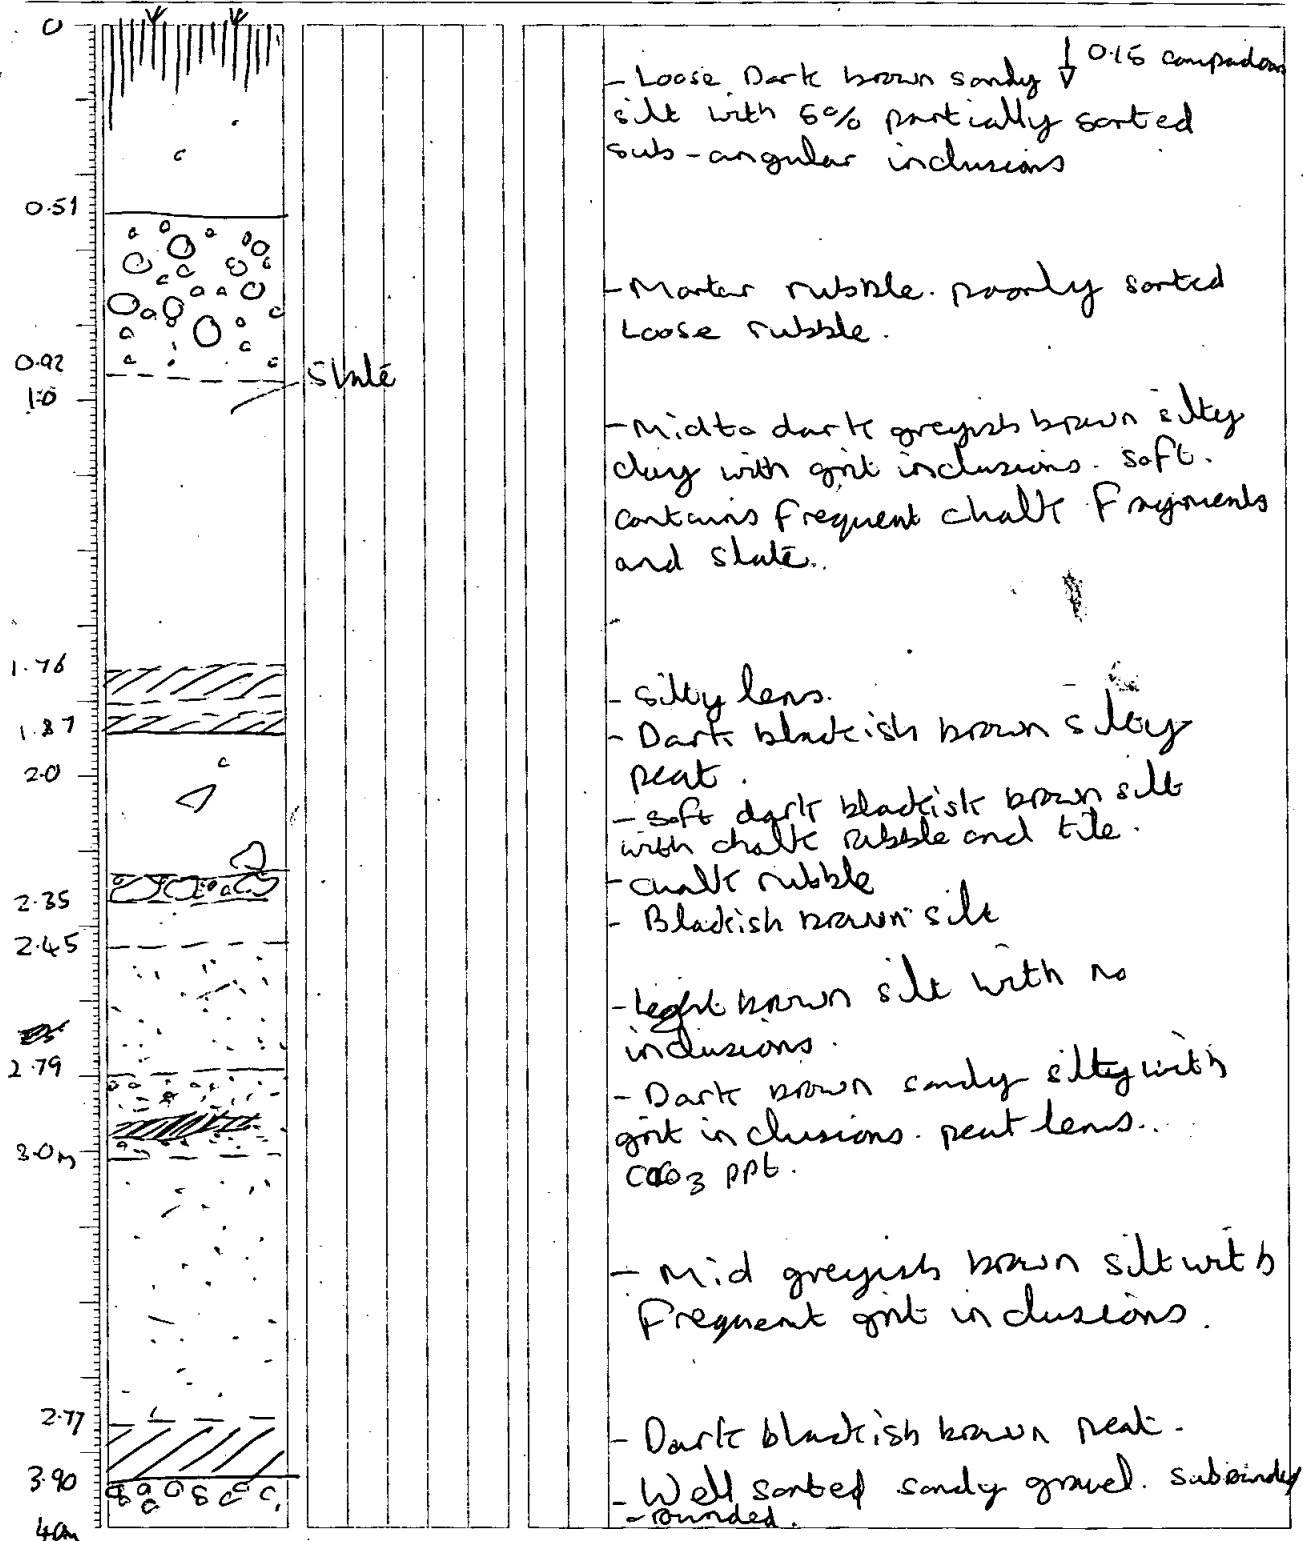 0
↓ 0.15 compaction
- Loose Dark brown sandy
silt with 5% partially sorted
sub-angular inclusions
0.51
- Mortar rubble. poorly sorted
Loose rubble.
0.92
Slate
1.0
- Mid to dark greyish brown silty
clay with grit inclusions. soft.
contains frequent chalk fragments
and slate..
1.76
- silty lens.
1.87
- Dark blackish brown silty
peat.
2.0
- soft dark blackish brown silt
with chalk rubble and tile.
- chalk rubble
2.35
- Blackish brown silt
2.45
- Light brown silt with no
inclusions.
2.79
- Dark brown sandy silty with
grit inclusions. peat lens..
3.0m
CaCO3 ppt.
- Mid greyish brown silt with
Frequent grit inclusions.
2.77
- Dark blackish brown peat.
3.90
- Well sorted sandy gravel. subrounded
- rounded.
4.0m